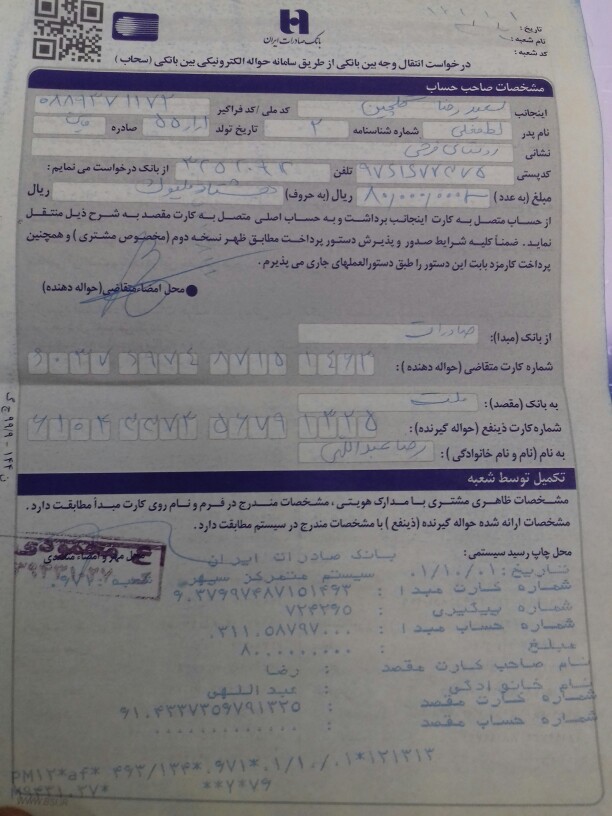 تاریخ :
نام شعبه :
کد شعبه :
بانک صادرات ایران
درخواست انتقال وجه بین بانکی از طریق سامانه حواله الکترونیکی بین بانکی (سحاب)
مشخصات صاحب حساب
اینجانب سعید رضا گلچین کد ملی/کد فراگیر
نام پدر لطفعلی شماره شناسنامه ۲ تاریخ تولد صادره
نشانی
کدپستی تلفن از بانک درخواست می نمایم :
مبلغ (به عدد) ۸۰,۰۰۰,۰۰۰ ریال (به حروف) هشتاد میلیون ریال
از حساب متصل به کارت اینجانب برداشت و به حساب اصلی متصل به کارت مقصد به شرح ذیل منتقل
نماید. ضمناً کلیه شرایط صدور و پذیرش دستور پرداخت مطابق ظهر نسخه دوم (مخصوص مشتری) و همچنین
پرداخت کارمزد بابت این دستور را طبق دستورالعملهای جاری می پذیرم.
محل امضاء متقاضی (حواله دهنده)
از بانک (مبدا): صادرات
شماره کارت متقاضی (حواله دهنده): ۶۰۳۷ ۶۹۷۴ ۸۷۱۵ ۱۴۶۳
به بانک (مقصد): ملت
شماره کارت ذینفع (حواله گیرنده): ۶۱۰۴ ۳۳۷۳ ۵۶۷۹ ۱۳۲۵
به نام (نام و نام خانوادگی): رضا عبداللهی
تکمیل توسط شعبه
مشخصات ظاهری مشتری با مدارک هویتی، مشخصات مندرج در فرم و نام روی کارت مبدأ مطابقت دارد.
مشخصات ارائه شده حواله گیرنده (ذینفع) با مشخصات مندرج در سیستم مطابقت دارد.
محل چاپ رسید سیستمی:
بانک صادرات ایران
تاریخ: ۰۱/۱۰/۰۱ سیستم متمرکز سپهر
شماره کارت مبدا : ۶۰۳۷۶۹۷۴۸۷۱۵۱۴۶۳
شماره پیگیری : ۷۲۴۳۶۵
شماره حساب مبدا : ۰۳۱۱۰۵۸۷۹۷۰۰۰
مبلغ : ۸۰۰۰۰۰۰۰۰
نام صاحب کارت مقصد : رضا
نام خانوادگی : عبداللهی
شماره کارت مقصد : ۶۱۰۴۳۳۷۳۵۶۷۹۱۳۲۵
شماره حساب مقصد : ۰۰۰۰۰۰۰۰۰۰۰۰۰